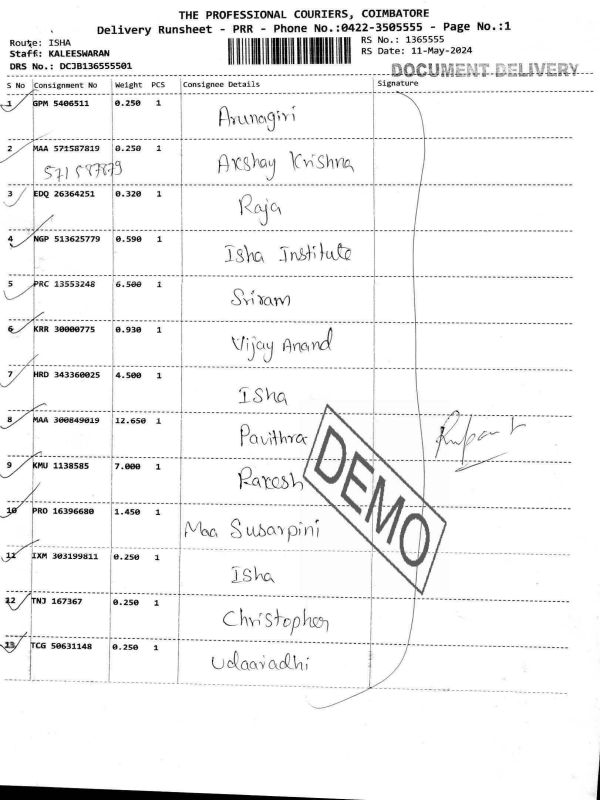 THE PROFESSIONAL COURIERS, COIMBATORE
Delivery Runsheet - PRR - Phone No.:0422-3505555 - Page No.:1
Route: ISHA
Staff: KALEESWARAN
DRS No.: DCJB136555501
RS No.: 1365555
RS Date: 11-May-2024
DOCUMENT DELIVERY
S No Consignment No Weight PCS Consignee Details Signature
1 GPM 5406511 0.250 1 Arunagiri
2 MAA 571587819 0.250 1 Akshay Krishna
571587879
3 EDQ 26364251 0.320 1 Raja
4 NGP 513625779 0.590 1 Isha Institute
5 PRC 13553248 6.500 1 Sriram
6 KRR 30000775 0.930 1 Vijay Anand
7 HRD 343360025 4.500 1 Isha
8 MAA 300849019 12.650 1 Pavithra
9 KMU 1138585 7.000 1 Rakesh
10 PRO 16396680 1.450 1 Maa Susarpini
11 IXM 303199811 0.250 1 Isha
12 TNJ 167367 0.250 1 Christopher
13 TCG 50631148 0.250 1
DEMO